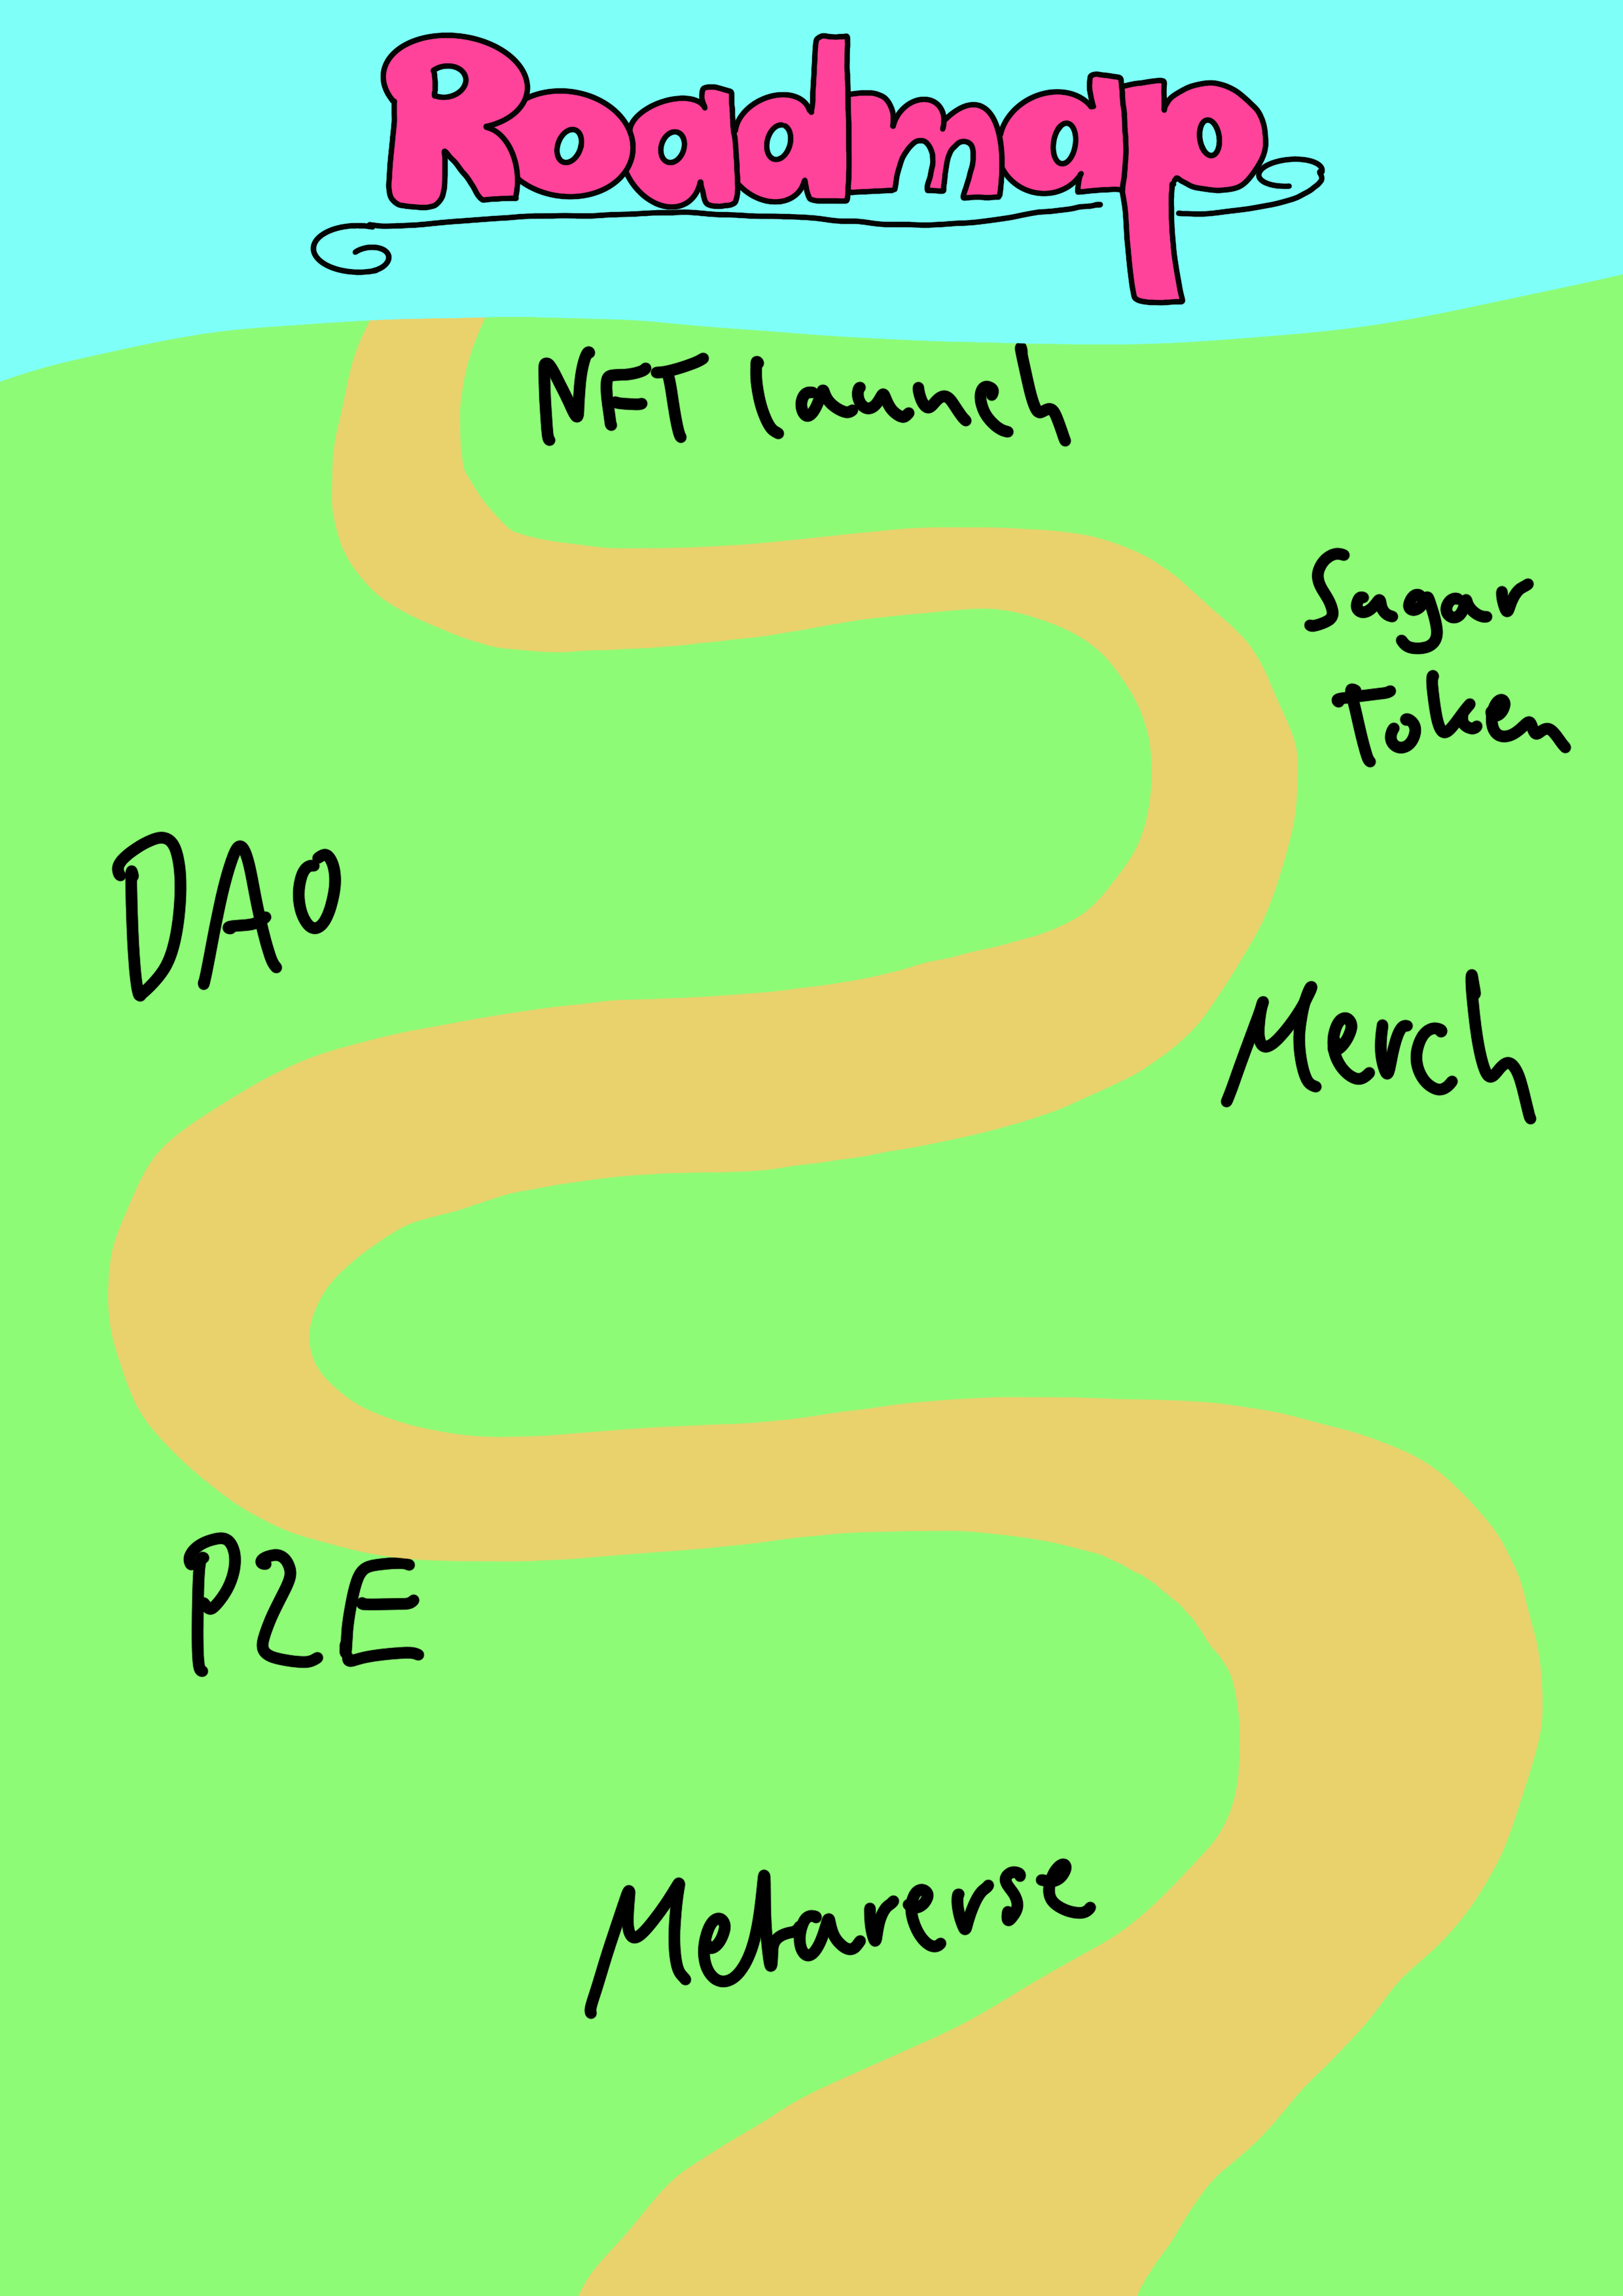 Roadmap
NFT launch
Sugar
Token
DAO
Merch
P2E
Metaverse